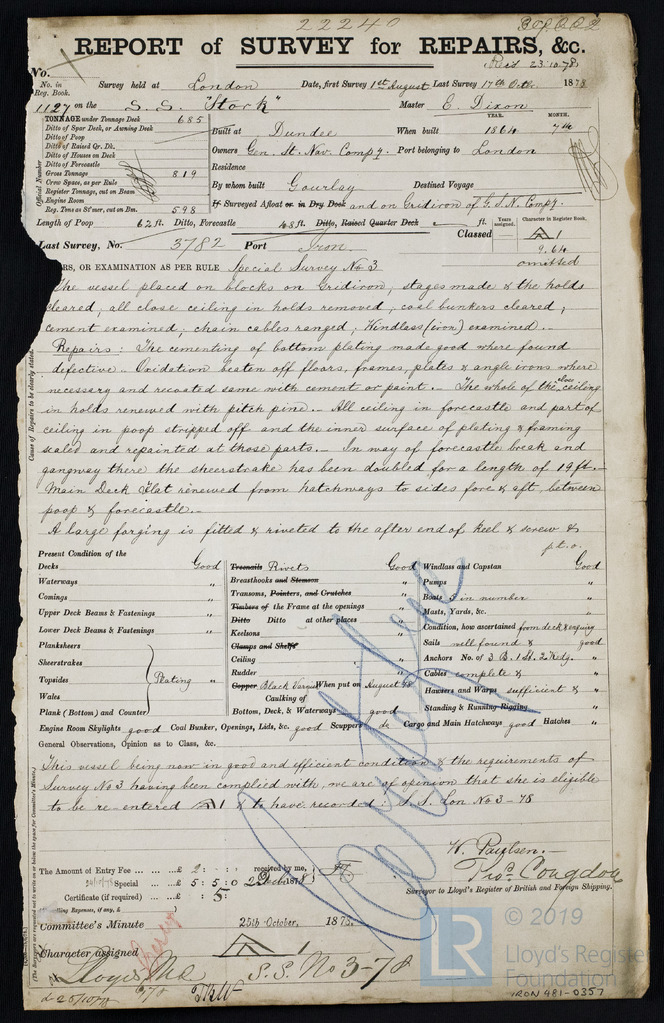 22240
REPORT of SURVEY for REPAIRS, &c.
Rec'd 23.10.78
No.
No. in Reg. Book.
Survey held at London Date, first Survey 1st August Last Survey 17th Octr 1878
1127 on the S.S. "Stork" Master E. Dixon
TONNAGE under Tonnage Deck 685
Ditto of Spar Deck, or Awning Deck
Ditto of Poop
Ditto of Raised Qr. Dk.
Ditto of Houses on Deck
Ditto of Forecastle
Gross Tonnage 819
Crew Space, as per Rule
Register Tonnage, cut on Beam
Engine Room
Reg. Tons as St'mer, cut on Bm. 598
Official Number
YEAR. MONTH.
Built at Dundee When built 1864 7th
Owners Gen. St. Nav. Compy. Port belonging to London
Residence
By whom built Gourlay Destined Voyage
If Surveyed Afloat or in Dry Dock and on Gridiron of G.S.N. Compy.
Length of Poop 62 ft. Ditto, Forecastle 48 ft. Ditto, Raised Quarter Deck ft.
Years assigned. Character in Register Book.
Last Survey, No. 3782 Port Iron. Classed A 1
9.64
omitted
RS, OR EXAMINATION AS PER RULE Special Survey No 3
The vessel placed on blocks on Gridiron, stages made & the holds
cleared, all close ceiling in holds removed, coal bunkers cleared,
cement examined, chain cables ranged, Windlass (iron) examined.—
Repairs: The cementing of bottom plating made good where found
defective. Oxidation beaten off floors, frames, plates & angle irons where
necessary and recoated same with cement or paint.— The whole of the close ceiling
in holds renewed with pitch pine.— All ceiling in forecastle and part of
ceiling in poop stripped off and the inner surface of plating & framing
scaled and repainted at those parts.— In way of forecastle break and
gangway there the sheerstrake has been doubled for a length of 19 ft.—
Main Deck Flat renewed from hatchways to sides fore & aft, between
poop & forecastle.—
A large forging is fitted & riveted to the after end of keel & screw &
p.t.o.
Cause of Repairs to be clearly stated.
Present Condition of the
Decks Good
Waterways "
Comings "
Upper Deck Beams & Fastenings "
Lower Deck Beams & Fastenings "
Planksheers
Sheerstrakes
Topsides
Wales
Plank (Bottom) and Counter
Plating "
Treenails Rivets Good
Breasthooks and Stemson "
Transons, Pointers, and Crutches "
Timbers of the Frame at the openings "
Ditto Ditto at other places "
Keelsons "
Clamps and Shelfs
Ceiling "
Rudder "
Copper Black Varnish When put on August 78
Caulking of
Bottom, Deck, & Waterways good
Windlass and Capstan Good
Pumps "
Boats 5 in number "
Masts, Yards, &c. "
Condition, how ascertained from deck & enquiry
Sails well found & good
Anchors No. of 3 B. 1 St. 2 Kedg. "
Cables complete & "
Hawsers and Warps sufficient & "
Standing & Running Rigging "
Engine Room Skylights good Coal Bunker, Openings, Lids, &c. good Scuppers do Cargo and Main Hatchways good Hatches "
General Observations, Opinion as to Class, &c.
This vessel being now in good and efficient condition & the requirements of
Survey No 3 having been complied with, we are of opinion that she is eligible
to be re-entered A 1 & to have recorded: S.S. Lon. No 3-78
W. Paulsen.—
Thos. Congdon
Surveyor to Lloyd's Register of British and Foreign Shipping.
The Amount of Entry Fee ... £ 2 : : received by me,
Special ... £ 5 : 5 : 0 1878
Certificate (if required) ... £ : 5 :
Committee's Minute 25th October, 1878.
Character assigned A 1
Lloyds M.C. S.S. No 3-78
d 25/10/78
LR
© 2019
Lloyd's Register
Foundation
IRON 481-0357